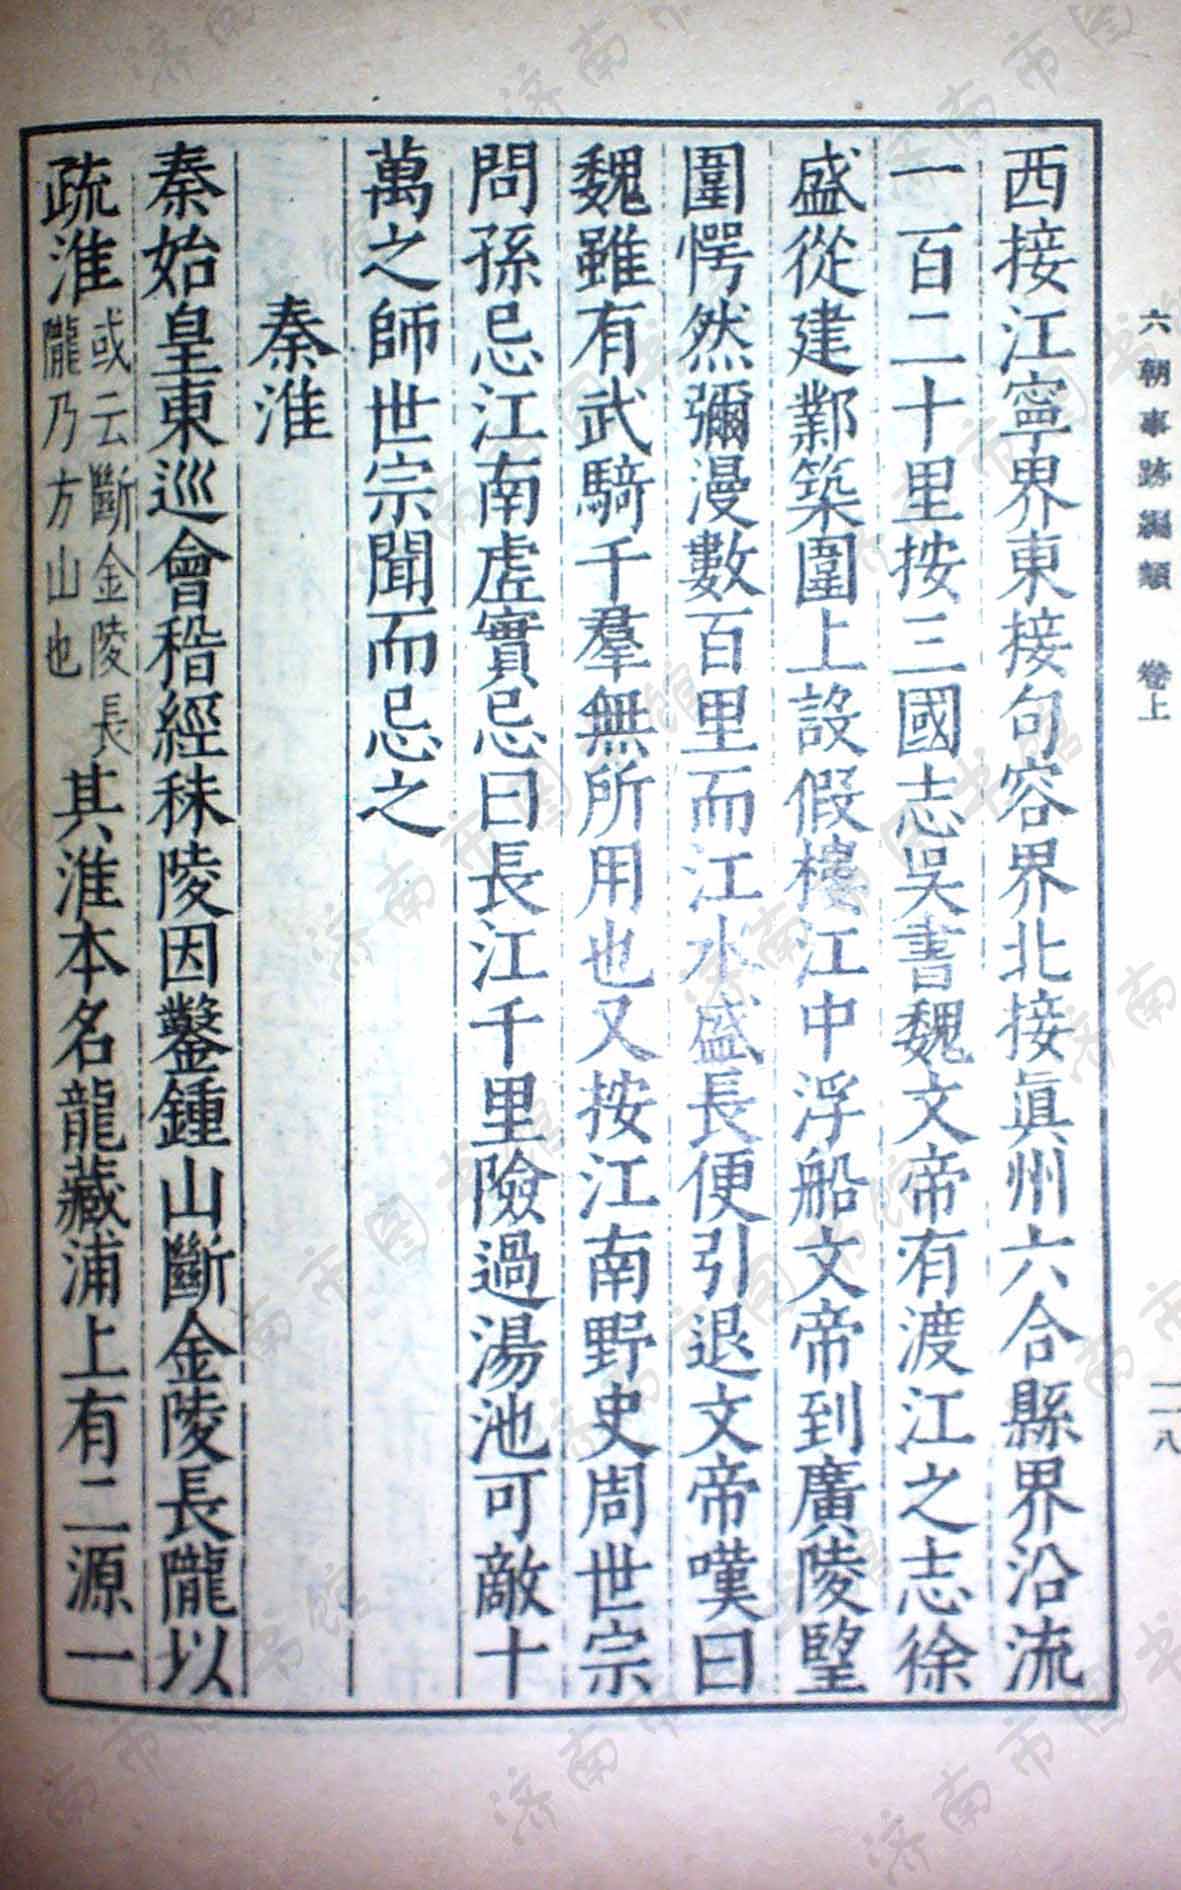 六朝事跡編類 卷上
二八
西接江寧界東接句容界北接眞州六合縣界沿流
一百二十里按三國志吳書魏文帝有渡江之志徐
盛從建鄴築圍上設假樓江中浮船文帝到廣陵朢
圍愕然彌漫數百里而江水盛長便引退文帝嘆曰
魏雖有武騎千羣無所用也又按江南野史周世宗
問孫忌江南虛實忌曰長江千里險過湯池可敵十
萬之師世宗聞而忌之
秦淮
秦始皇東巡會稽經秣陵因鑿鍾山斷金陵長隴以
疏淮或云斷金陵長隴乃方山也其淮本名龍藏浦上有二源一
济南市图书馆